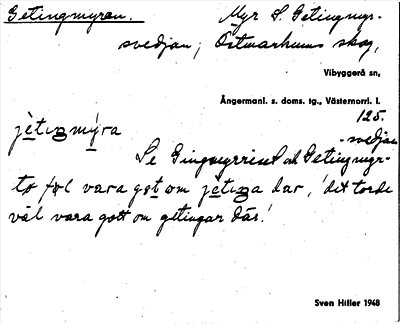 Getingmyren. Myr S. Getingmyr-
svedjan, Östmarkums skog,
Vibyggerå sn,
Ångermanl. s. doms. tg., Västernorrl. l.
125.
jètiŋmýra
-svedjan
Se Gingmyrriset och Getingmyr-
to vara got om jètiŋa dar, 'det torde
väl vara gott om getingar där.'
Sven Hiller 1948